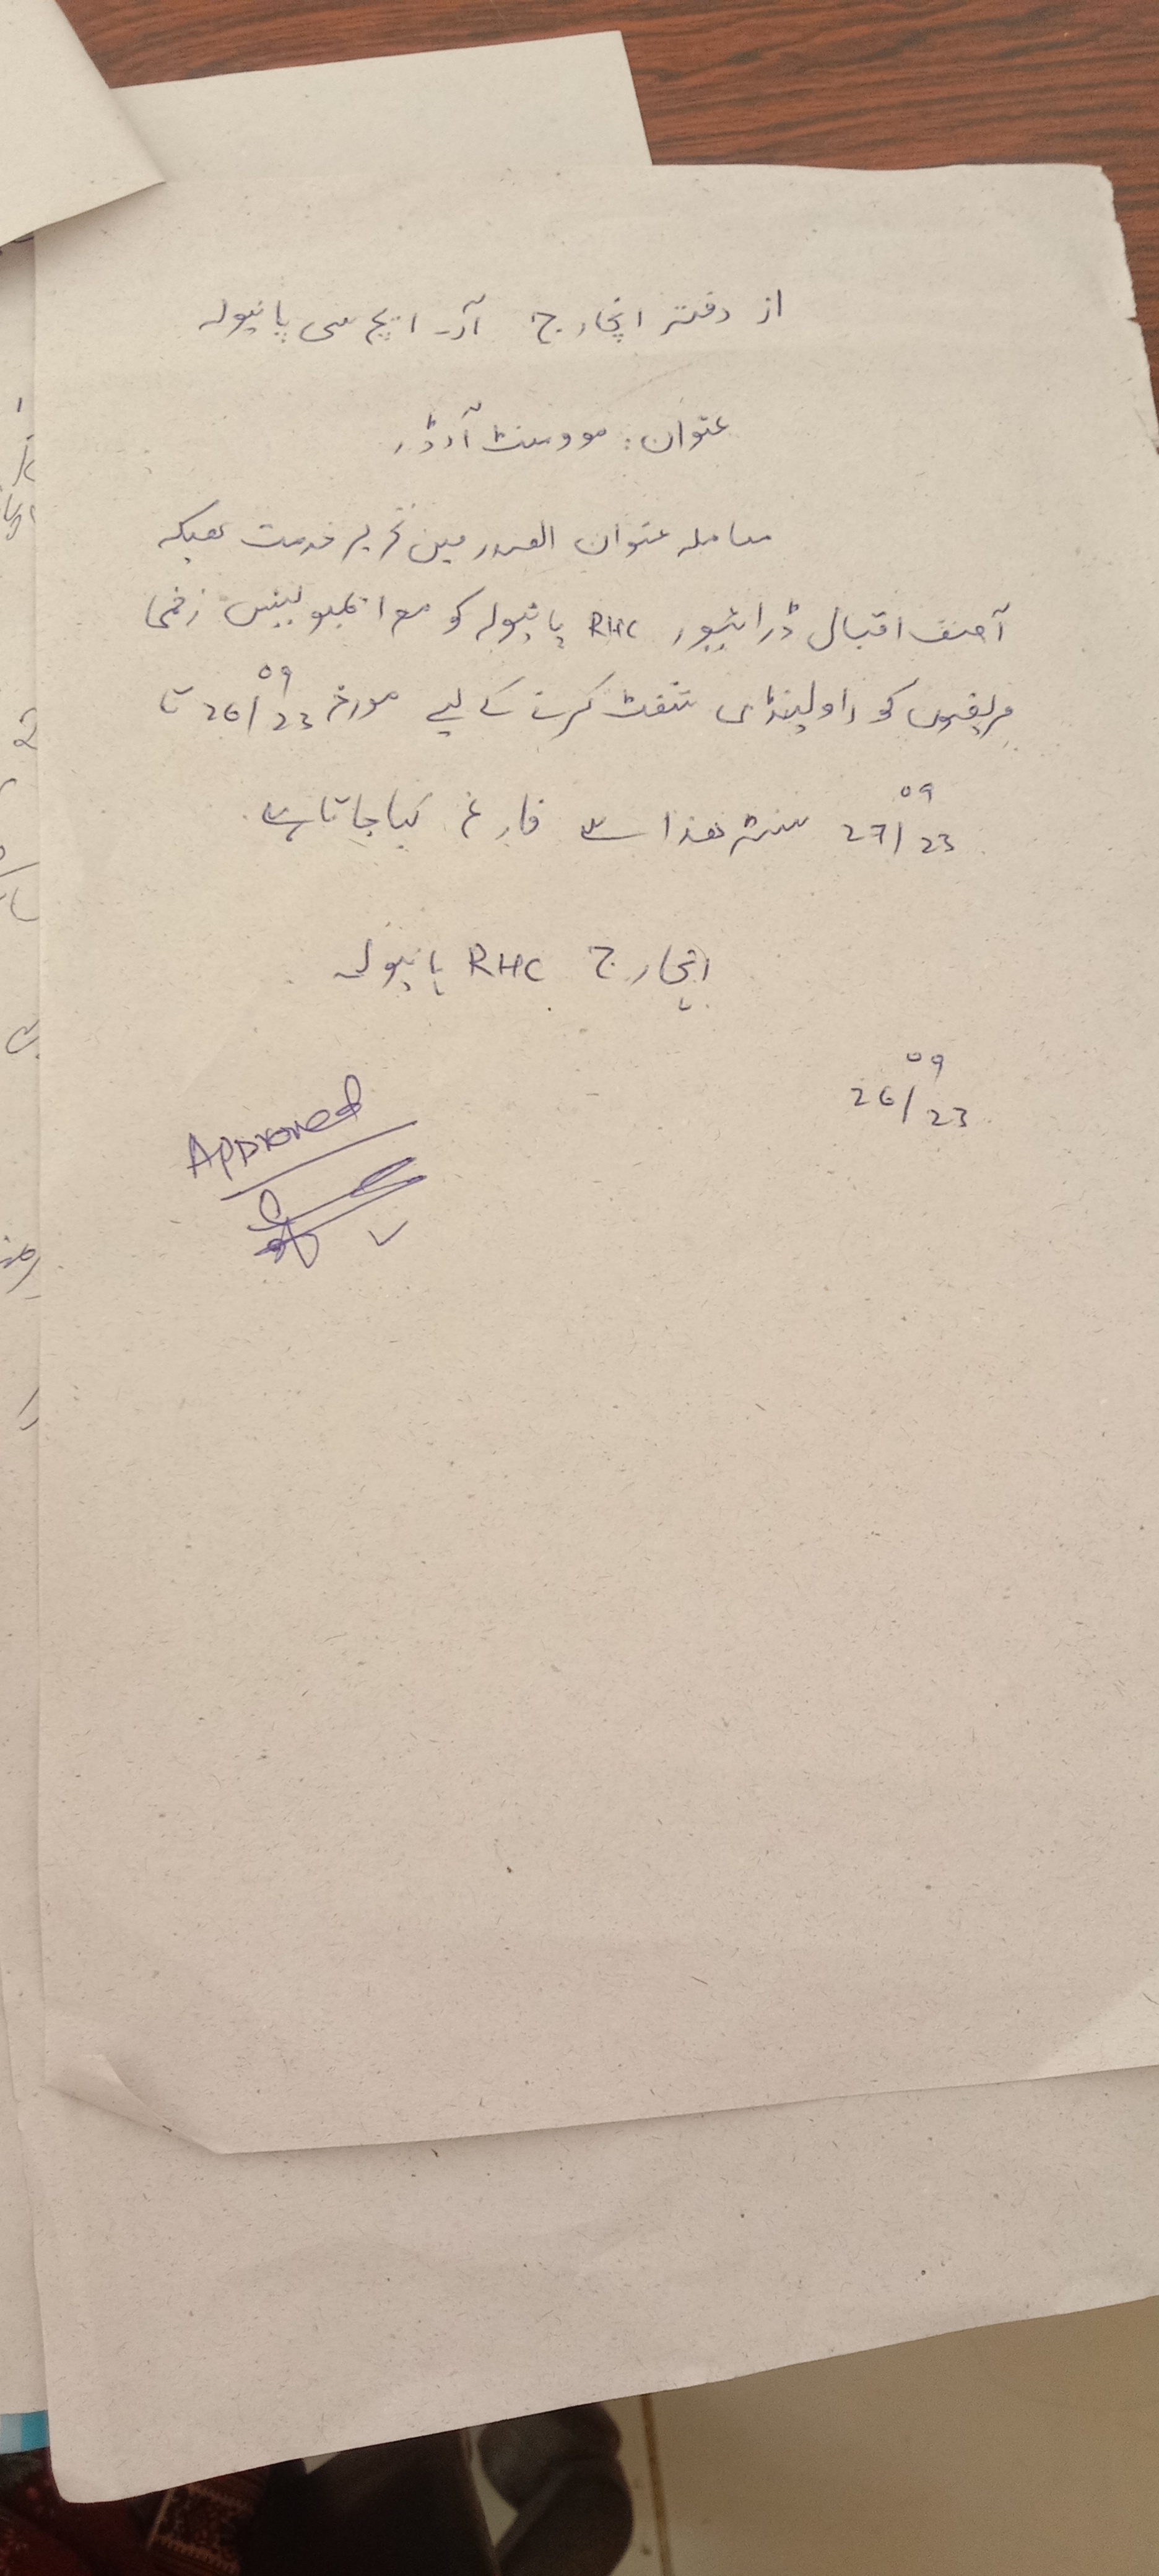 از دفتر انچارج آر۔ ایچ سی پانیولہ
عنوان: موومنٹ آرڈر
معاملہ عنوان الصدر میں تحریر خدمت ھیکہ
آصف اقبال ڈرائیور RHC پانیولہ کو مع ایمبولینس زخمی
مریضوں کو راولپنڈی شفٹ کرنے کے لیے مورخہ 26/09/23 تا
27/09/23 سنٹر ھذا سے فارغ کیا جاتا ہے
انچارج RHC پانیولہ
26/09/23
Approved